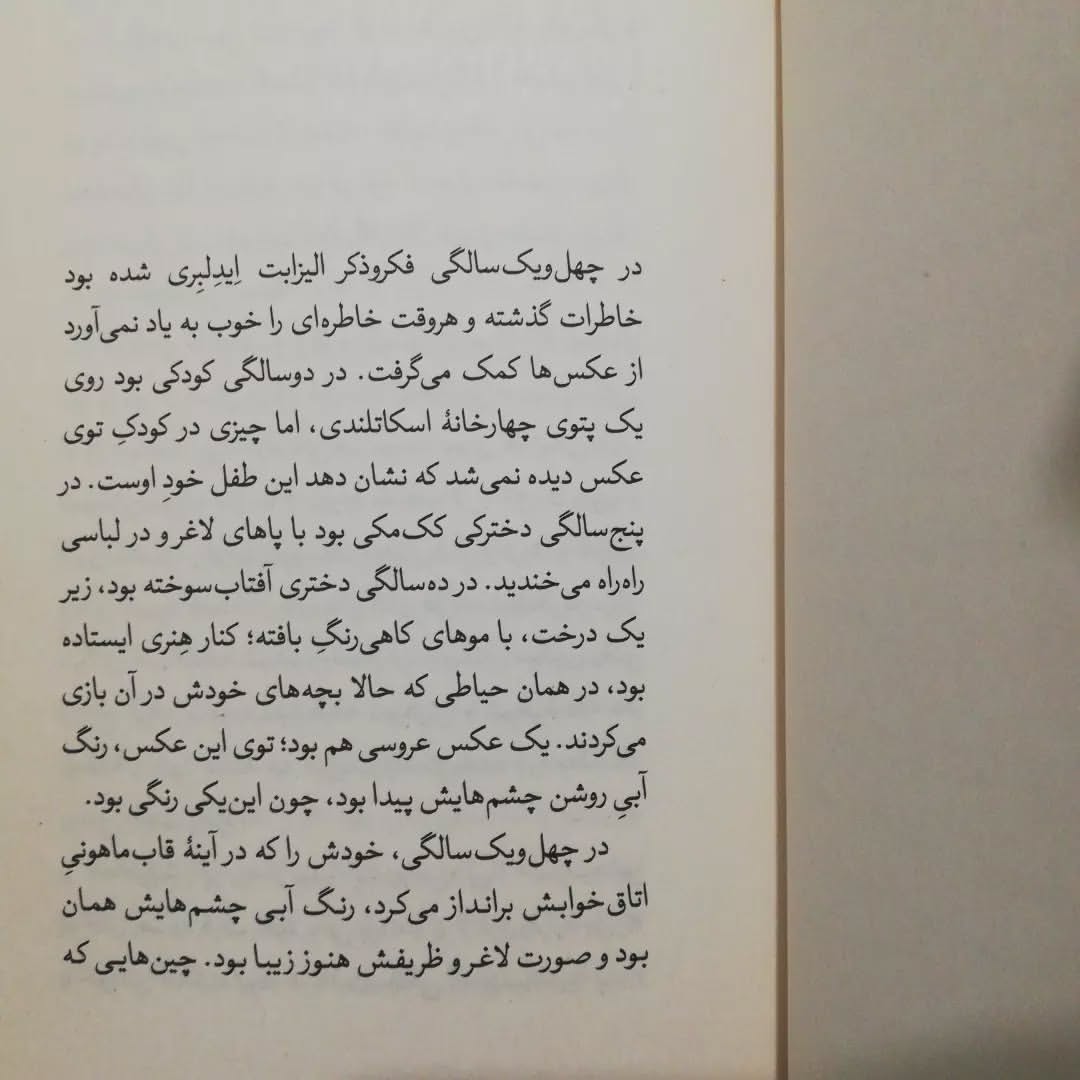 در چهل‌ویک‌سالگی فکروذکر الیزابت اِیدِلبِری شده بود
خاطرات گذشته و هروقت خاطره‌ای را خوب به یاد نمی‌آورد
از عکس‌ها کمک می‌گرفت. در دوسالگی کودکی بود روی
یک پتوی چهارخانهٔ اسکاتلندی، اما چیزی در کودکِ توی
عکس دیده نمی‌شد که نشان دهد این طفل خودِ اوست. در
پنج‌سالگی دخترکی کک‌مکی بود با پاهای لاغر و در لباسی
راه‌راه می‌خندید. در ده‌سالگی دختری آفتاب‌سوخته بود، زیر
یک درخت، با موهای کاهی‌رنگِ بافته؛ کنار هِنری ایستاده
بود، در همان حیاطی که حالا بچه‌های خودش در آن بازی
می‌کردند. یک عکس عروسی هم بود؛ توی این عکس، رنگ
آبیِ روشن چشم‌هایش پیدا بود، چون این‌یکی رنگی بود.
در چهل‌ویک‌سالگی، خودش را که در آینهٔ قاب‌ماهونیِ
اتاق‌خوابش برانداز می‌کرد، رنگ آبی چشم‌هایش همان
بود و صورت لاغر و ظریفش هنوز زیبا بود. چین‌هایی که